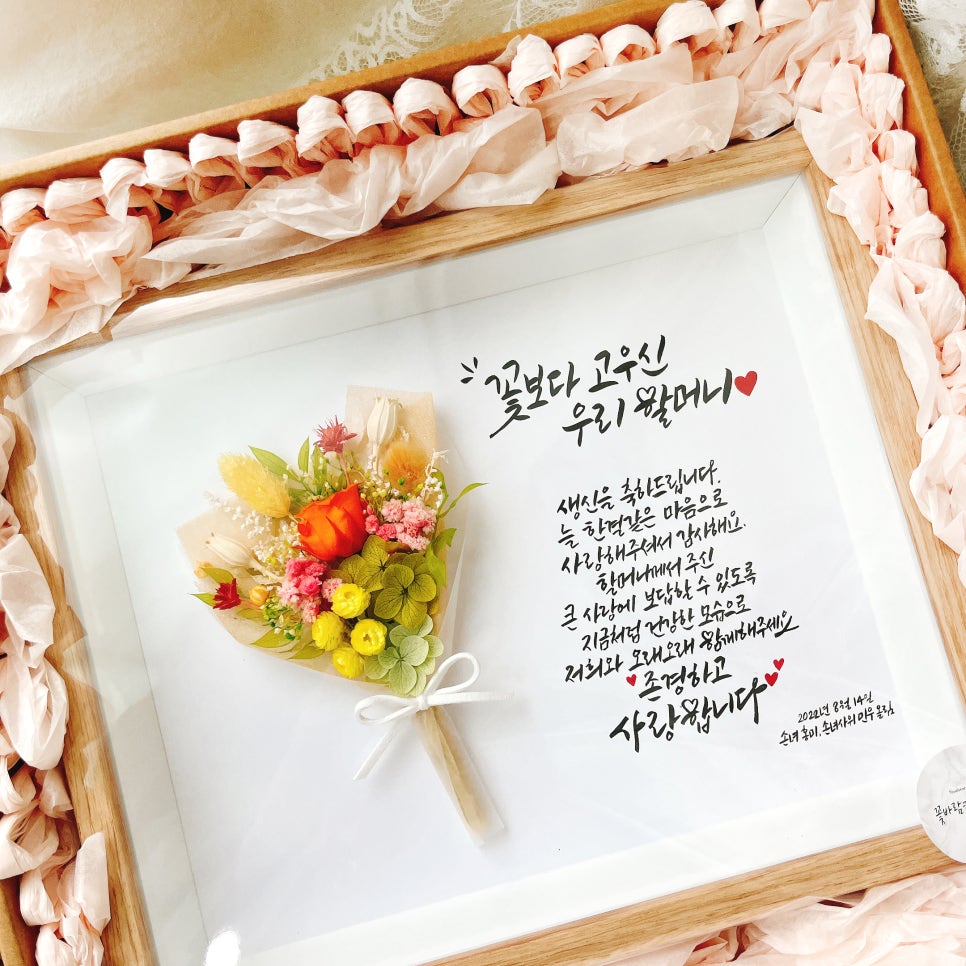 꽃보다 고우신
우리 할머니
생신을 축하드립니다.
늘 한결같은 마음으로
사랑해주셔서 감사해요.
할머니께서 주신
큰 사랑에 보답할 수 있도록
지금처럼 건강한 모습으로
저희와 오래오래 함께해주세요
존경하고
사랑합니다
2022년 8월 14일
손녀 홍미, 손녀사위 만우 올림
꽃바람